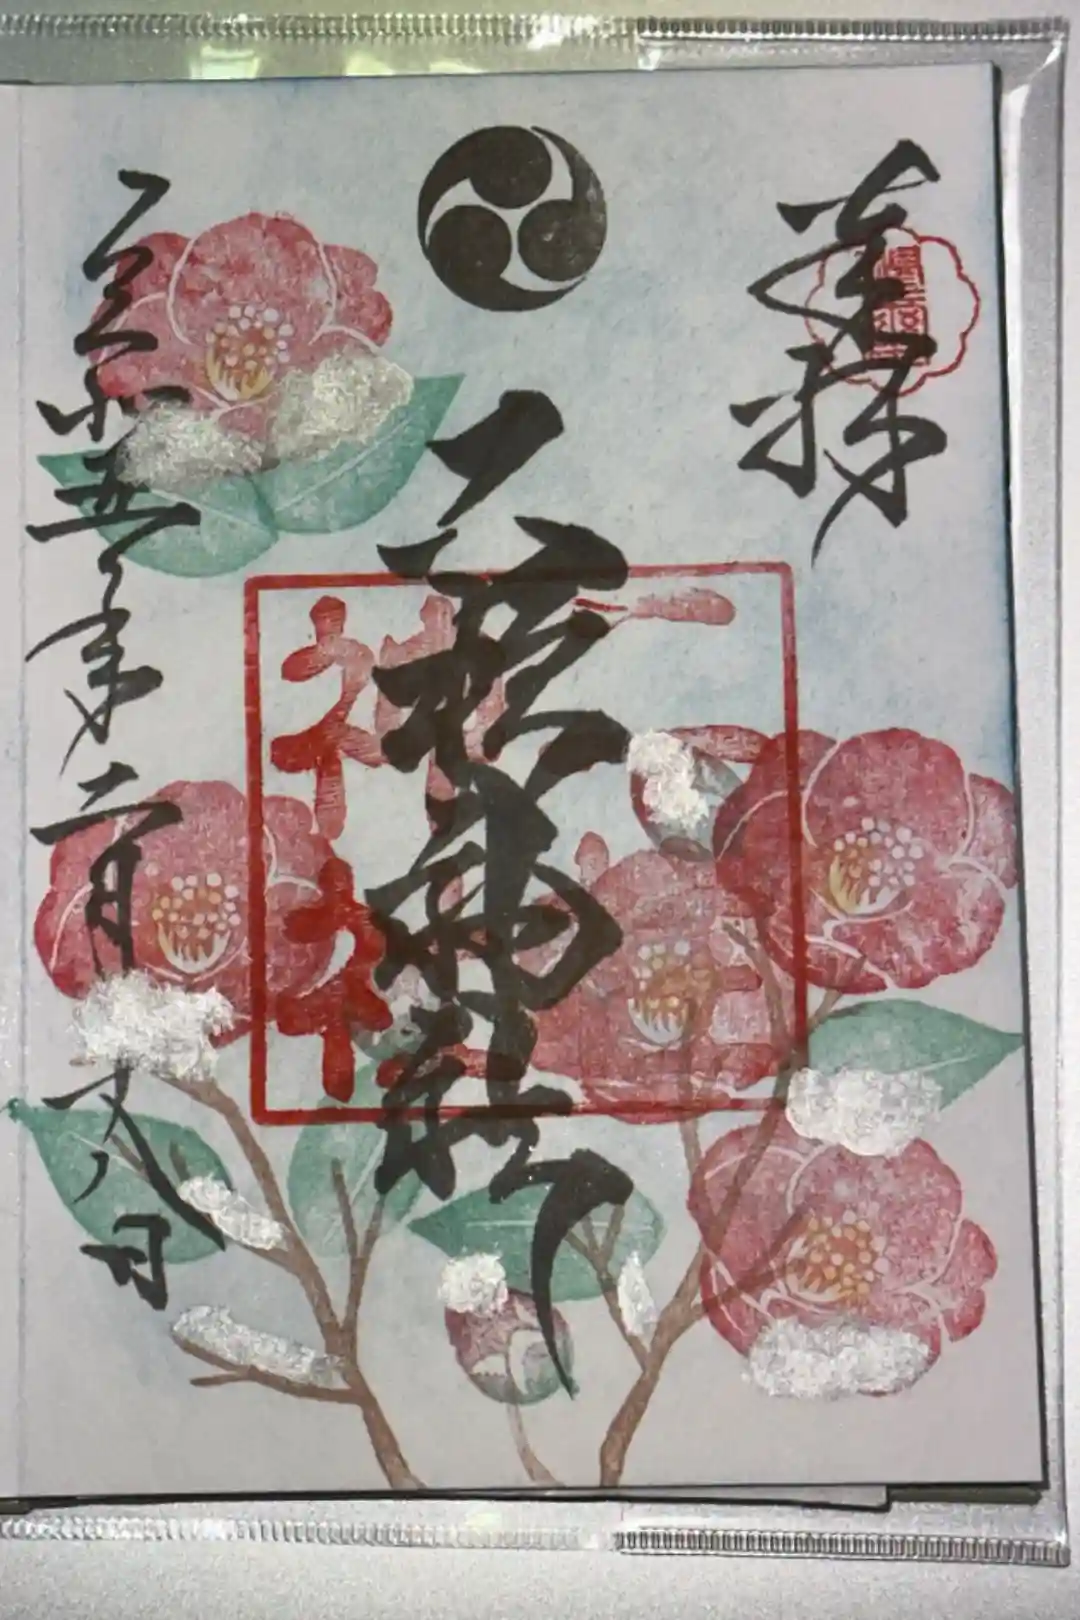 奉拝
二宮神社
令和五年二月十八日